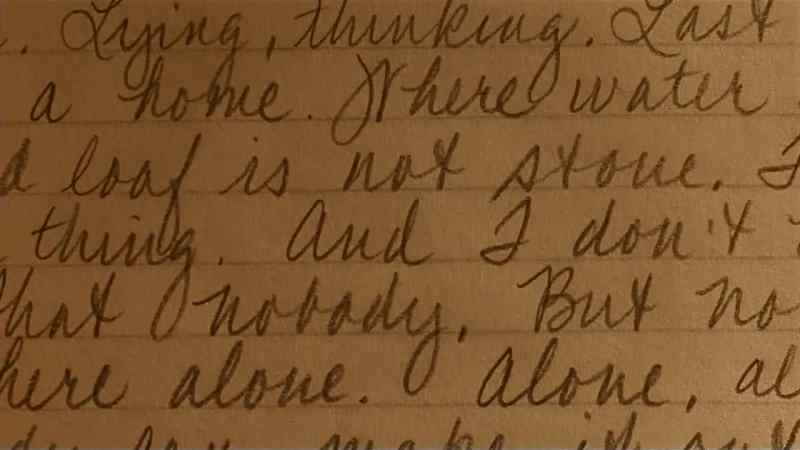 . Lying, thinking. Last
a home. Where water
d loaf is not stone. I
thing. And I don't
that nobody, But no
here alone. Alone, al
make it out